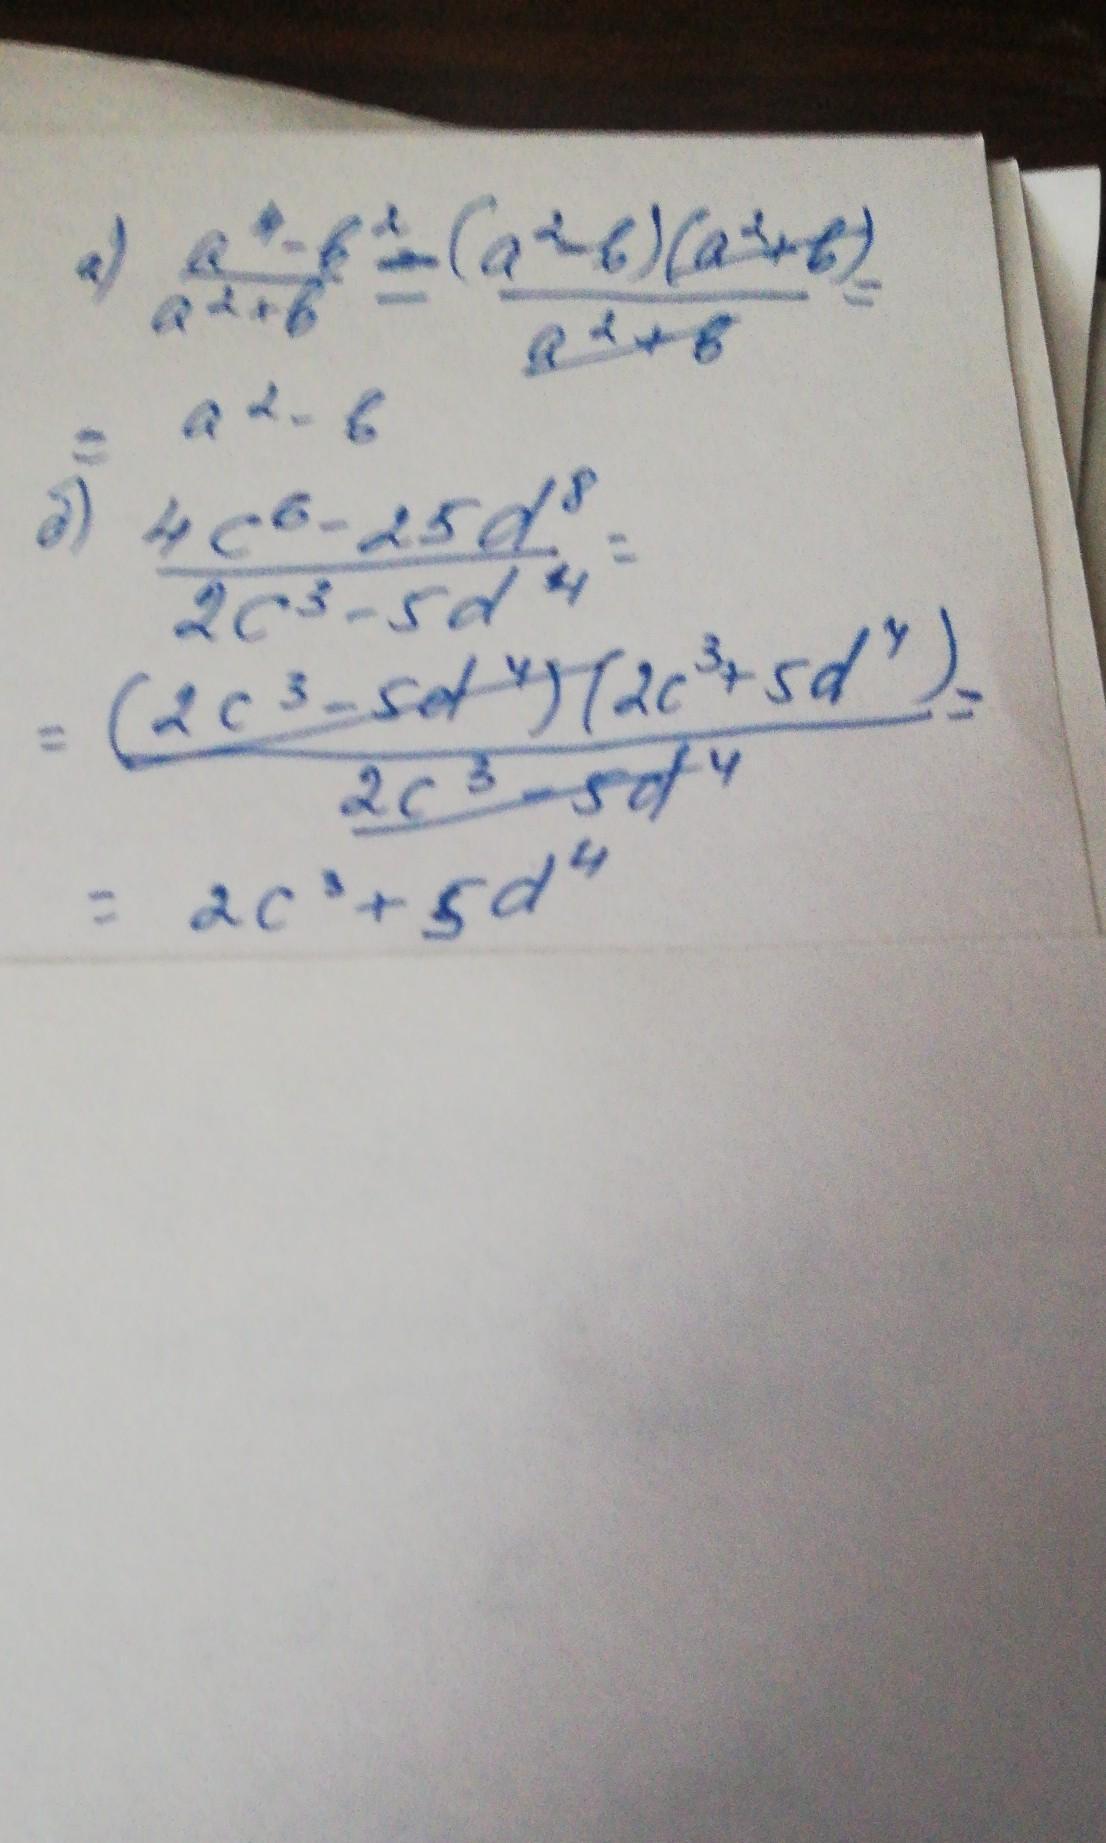 а) (a⁴ - b²)/(a² + b) = ((a² - b)(a² + b))/(a² + b) =
= a² - b
б) (4c⁶ - 25d⁸)/(2c³ - 5d⁴) =
= ((2c³ - 5d⁴)(2c³ + 5d⁴))/(2c³ - 5d⁴) =
= 2c³ + 5d⁴